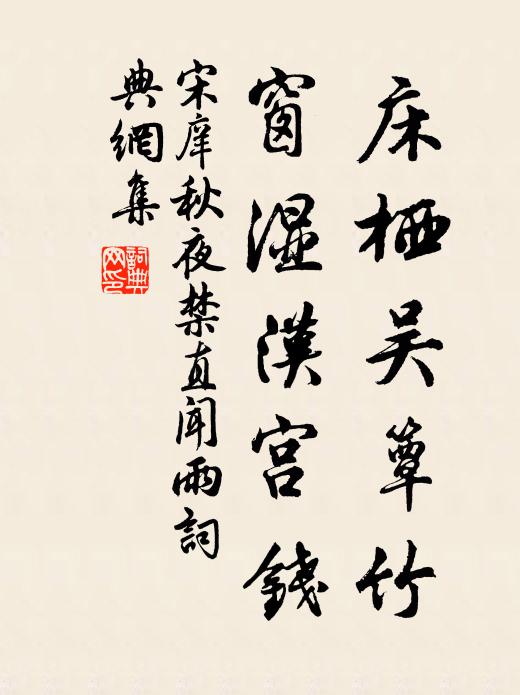 床栖吴簟竹
窗湿漢宫錢
宋庠秋夜禁直闻雨詞
典網集
詞典網印